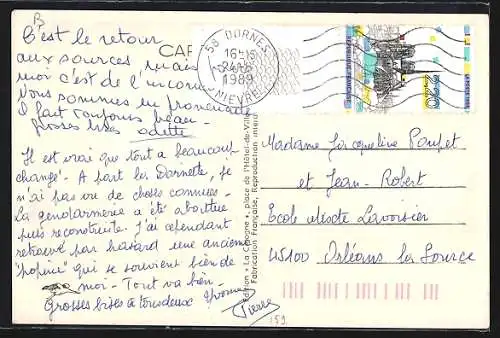 B
C'est le retour
aux sources mais
moi c'est de l'inconnu
Nous sommes en promenade
Il fait toujours beau -
grosses bises odette
Il est vrai que tout a beaucoup
changé. A part les Dornets, je
n'ai pas vu de choses connues -
La gendarmerie a été abattue
puis reconstruite. J'ai cependant
retrouvé par hasard une ancienne
"copine" qui se souvient bien de
moi - Tout va bien -
Grosses bises à tous deux Yvonne
Pierre
159
CAR
58 DORNES
16H15
24-8
1989
NIEVRE
2,20
Édition « La Cigogne », place de l'Hôtel-de-Ville
Fabrication Française, Reproduction interdite
Madame Jacqueline Poupet
et Jean-Robert
Ecole mixte Lavoisier
45100 Orléans la Source